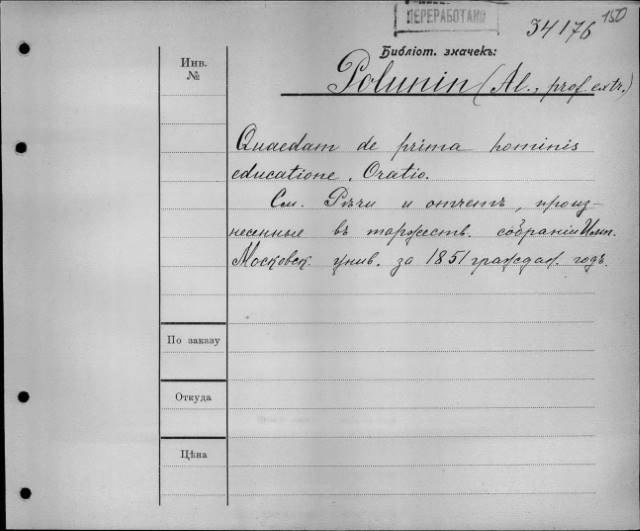 150
ПЕРЕРАБОТАНО
34176
Библіот. значекъ:
Инв.
№
Polunin (Al., prof. extr.)
Quaedam de prima hominis
educatione. Oratio.
См. Рѣчи и отчетъ, произ-
несенные въ торжеств. собраніи Имп.
Московск. унив. за 1851 граждан. годъ.
По заказу
Откуда
Цѣна